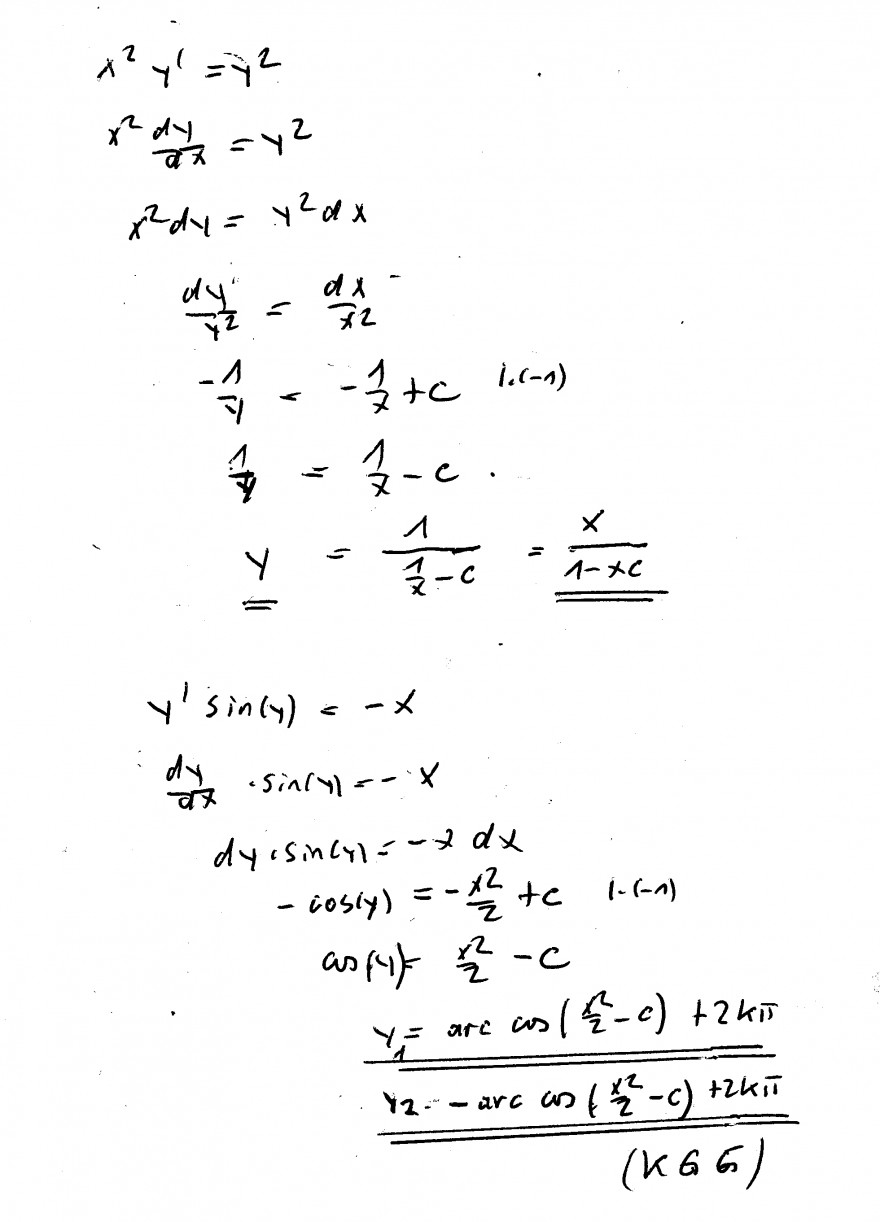 x² y' = y²
x² dy/dx = y²
x² dy = y² dx
dy/y² = dx/x²
-1/y = -1/x + c |·(-1)
1/y = 1/x - c
y = 1/(1/x - c) = x/(1-xc)
y' sin(y) = -x
dy/dx · sin(y) = -x
dy · sin(y) = -x dx
-cos(y) = -x²/2 + c |·(-1)
cos(y) = x²/2 - c
y₁ = arc cos(x²/2 - c) + 2kπ
y₂ = -arc cos(x²/2 - c) + 2kπ
(K ∈ G)